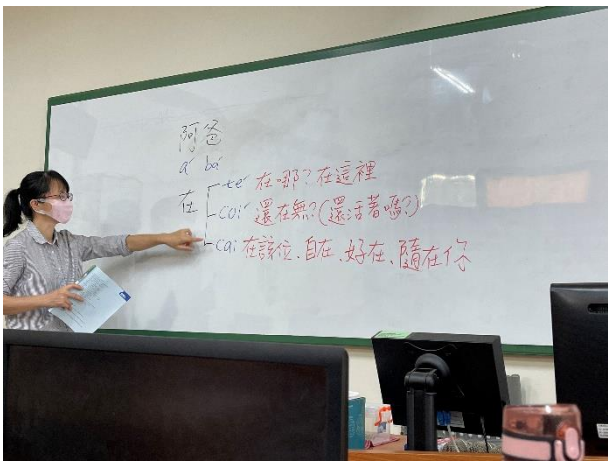 阿爸
á bá
在 te 在哪?在這裡
coi 還在無?(還活著嗎?)
cai 在該位、自在、好在、隨在你